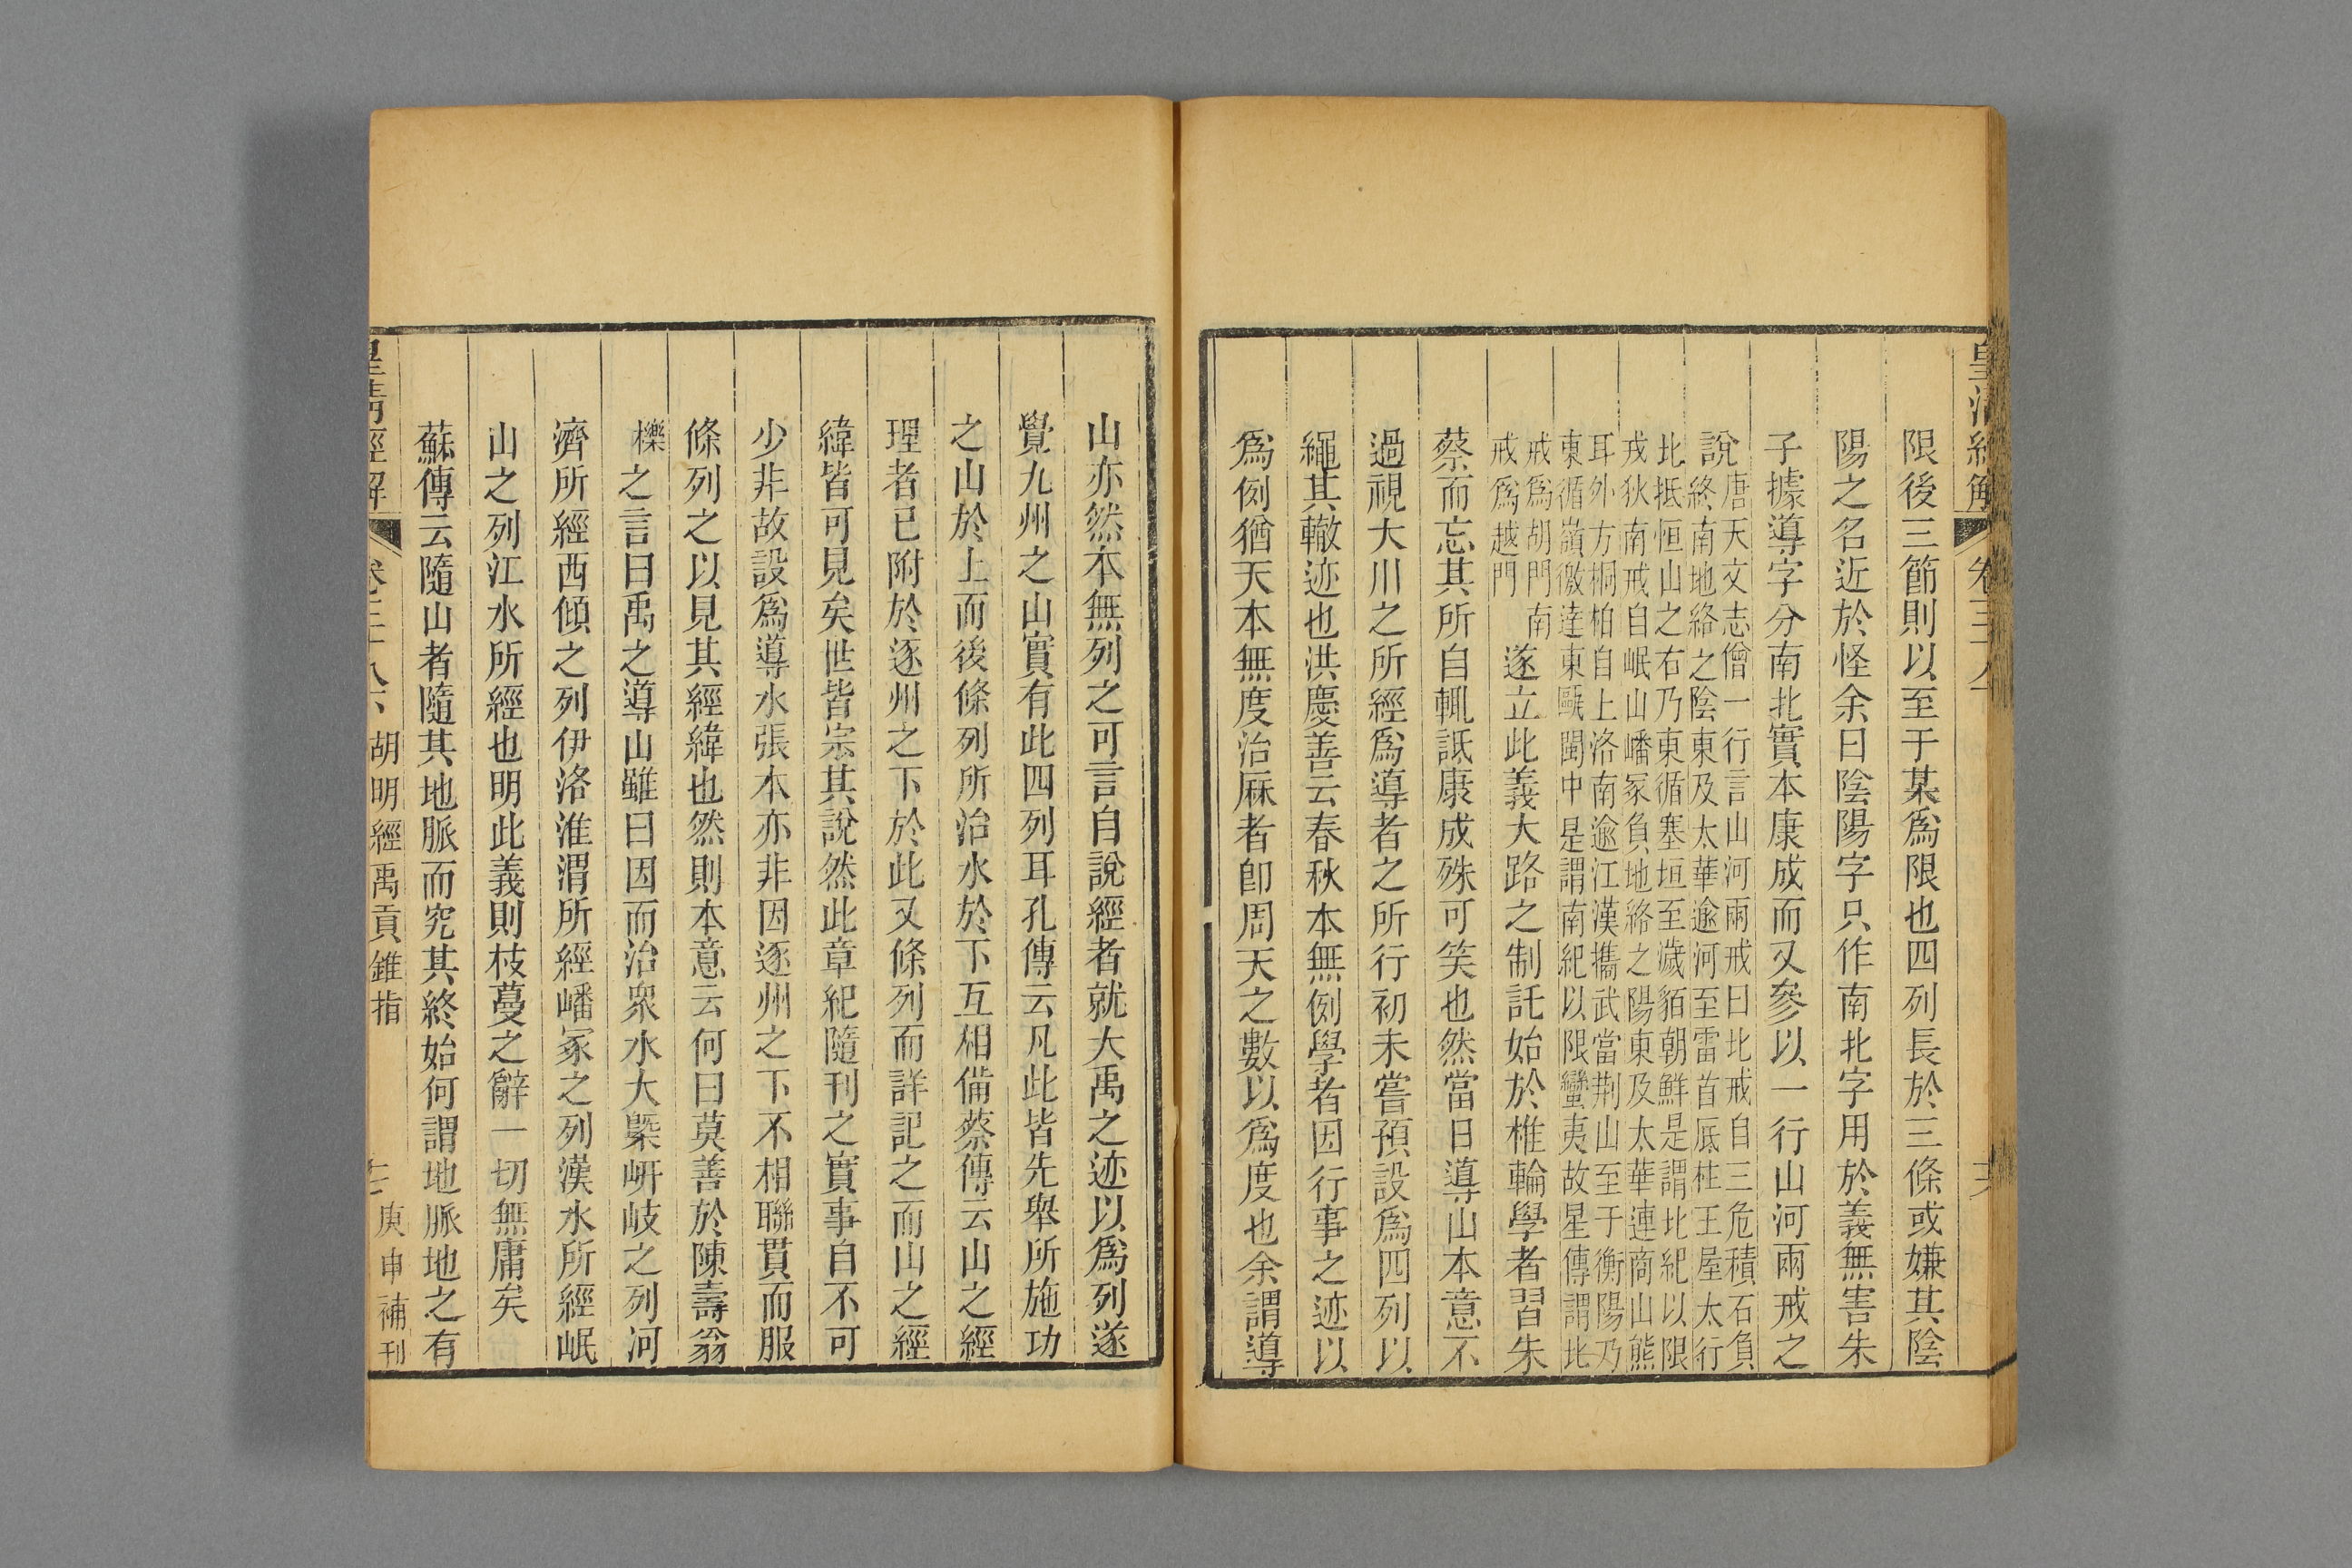 限後三節則以至于某爲限也四列長於三條或嫌其陰
陽之名近於怪余曰陰陽字只作南北字用於義無害朱
子據導字分南北實本康成而又參以一行山河兩戒之
說唐天文志僧一行言山河兩戒曰北戒自三危積石負
終南地絡之陰東及太華逾河至雷首厎柱王屋太行
北抵恒山之右乃東循塞垣至濊貊朝鮮是謂北紀以限
戎狄南戒自岷山嶓冢負地絡之陽東及太華連商山熊
耳外方桐柏自上洛南逾江漢攜武當荆山至于衡陽乃
東循嶺徼達東甌閩中是謂南紀以限蠻夷故星傳謂北
戒爲胡門南
戒爲越門
遂立此義大路之制託始於椎輪學者習朱
蔡而忘其所自輒詆康成殊可笑也然當日導山本意不
過視大川之所經爲導者之所行初未嘗預設爲四列以
繩其轍迹也洪慶善云春秋本無例學者因行事之迹以
爲例猶天本無度治厤者卽周天之數以爲度也余謂導
山亦然本無列之可言自說經者就大禹之迹以爲列遂
覺九州之山實有此四列耳孔傳云凡此皆先舉所施功
之山於上而後條列所治水於下互相備蔡傳云山之經
理者已附於逐州之下於此又條列而詳記之而山之經
緯皆可見矣世皆宗其說然此章紀隨刊之實事自不可
少非故設爲導水張本亦非因逐州之下不相聯貫而服
條列之以見其經緯也然則本意云何曰莫善於陳壽翁
櫟之言曰禹之導山雖曰因而治衆水大槩岍岐之列河
濟所經西傾之列伊洛淮渭所經嶓冢之列漢水所經岷
山之列江水所經也明此義則枝蔓之辭一切無庸矣
蘇傳云隨山者隨其地脈而究其終始何謂地脈地之有
皇清經解 卷三十八下 胡明經禹貢錐指 庚申補刊